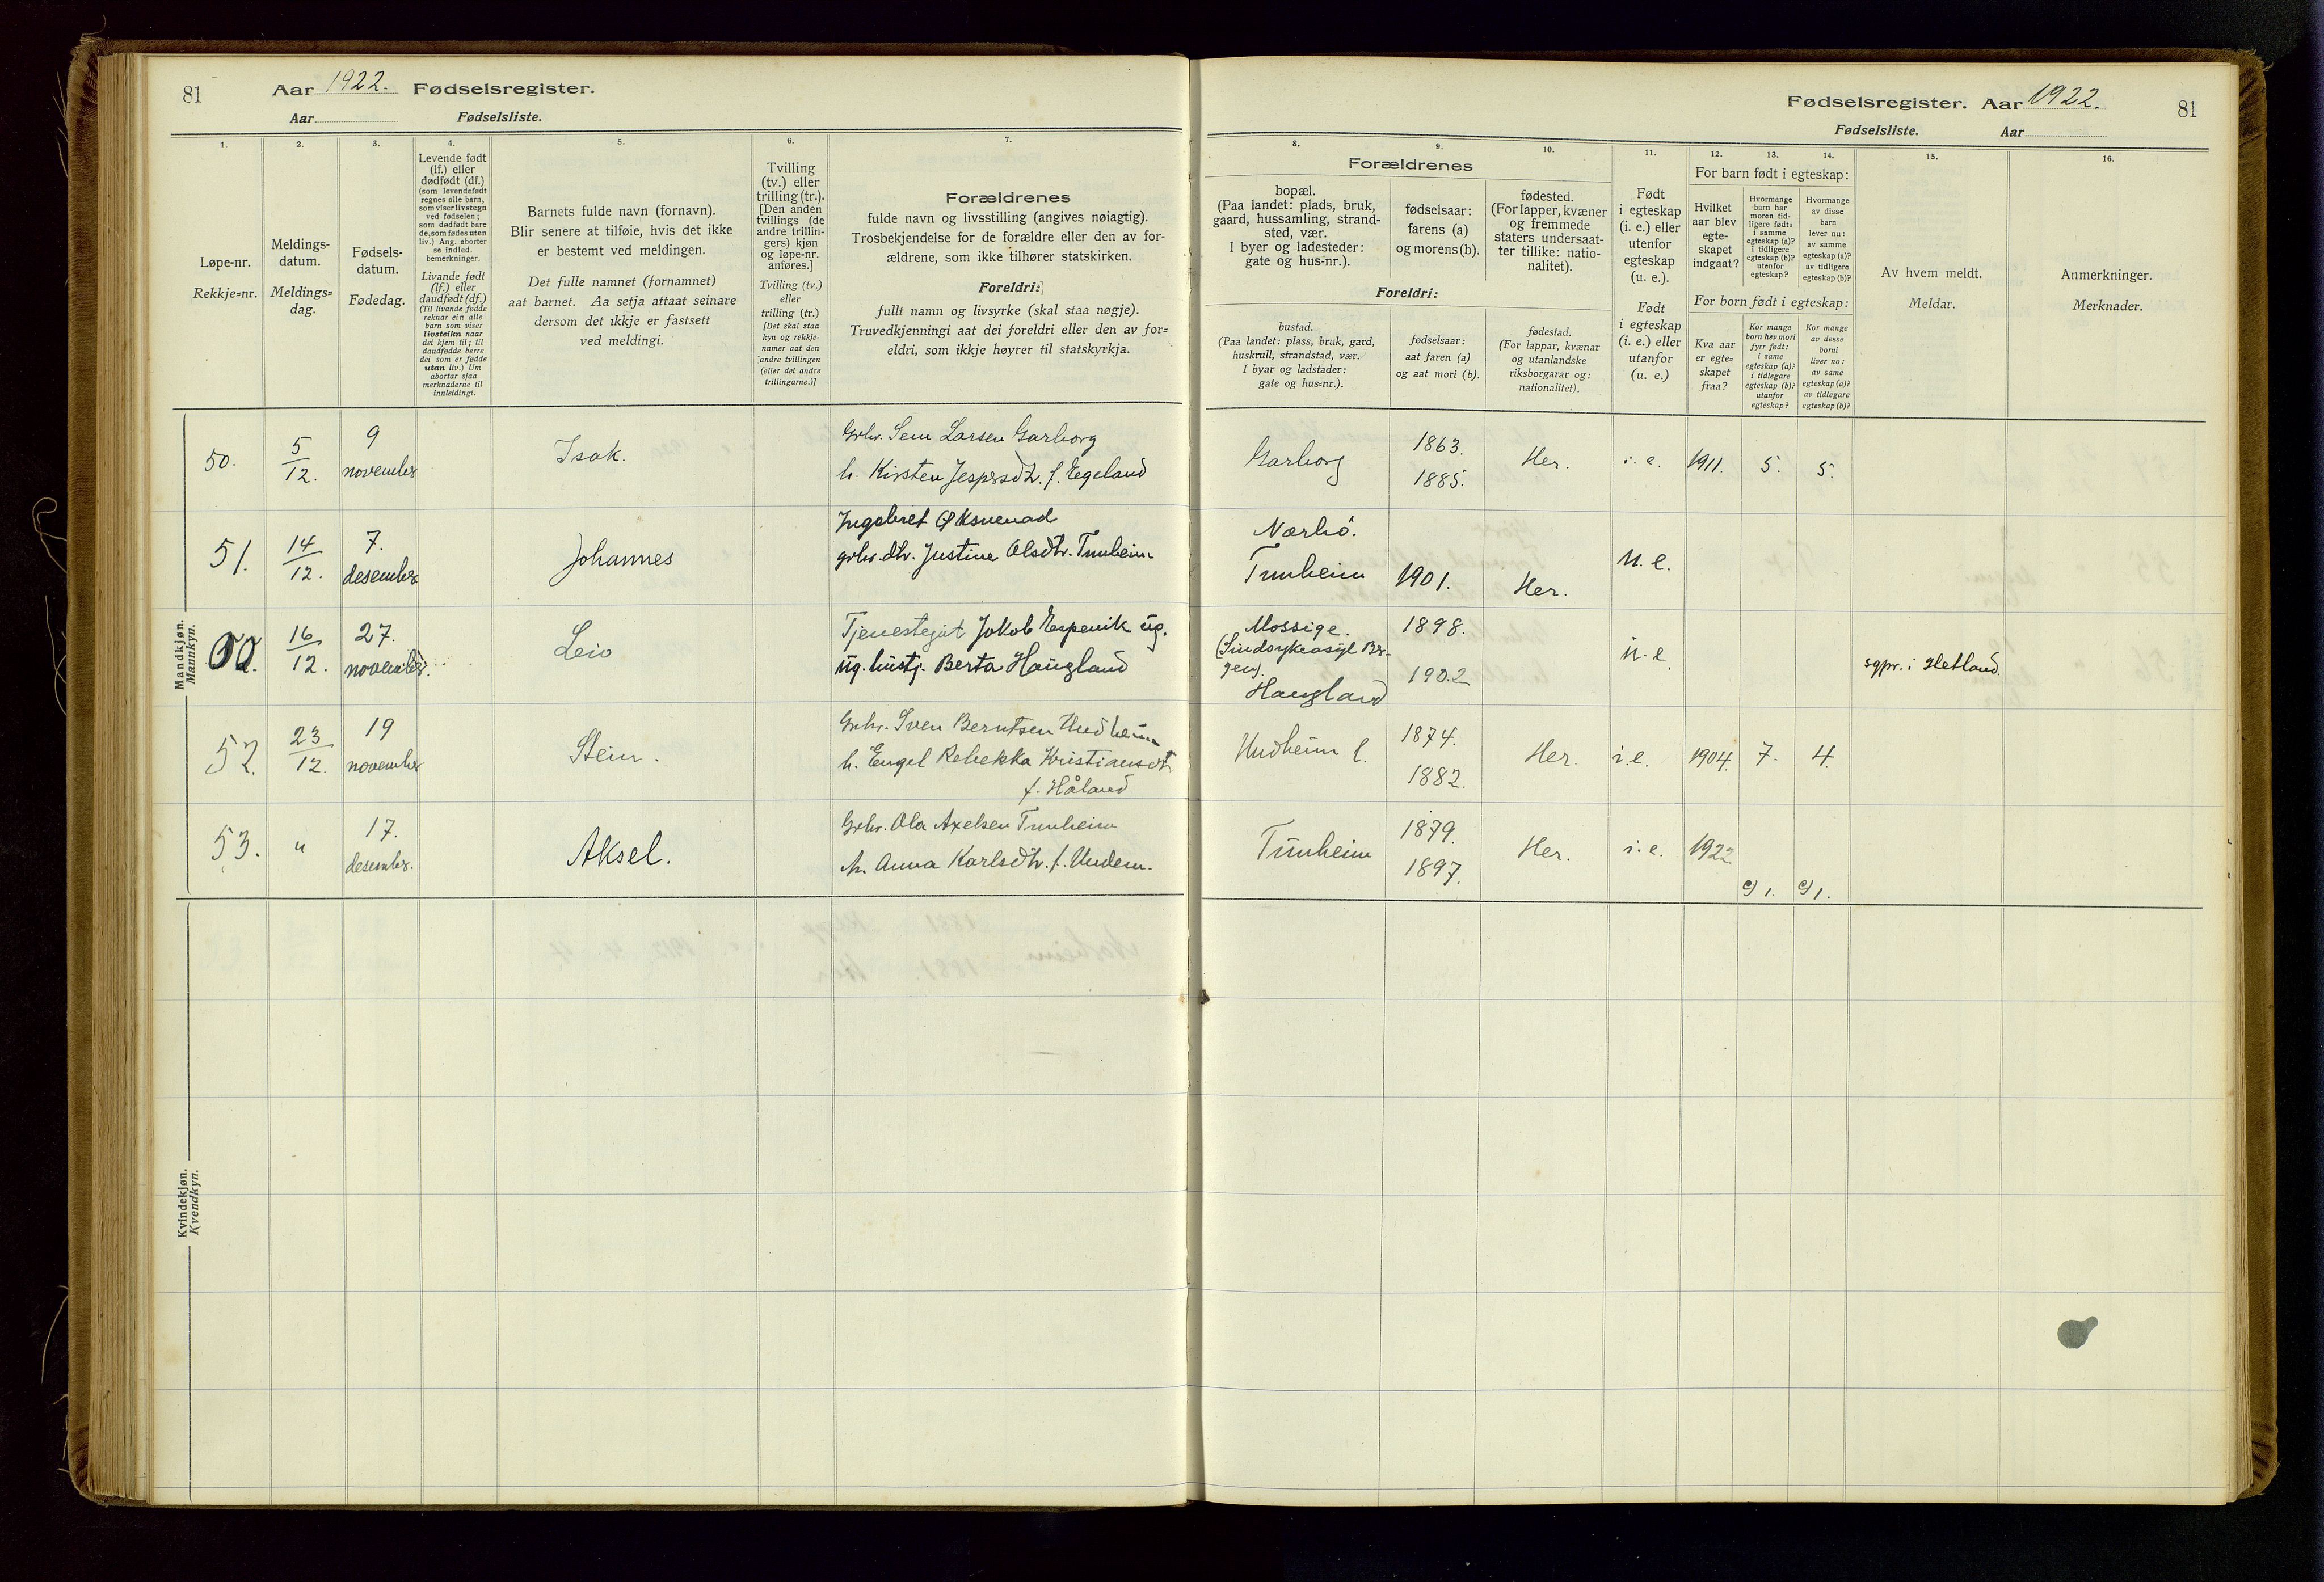 81
Aar 1922. Fødselsregister.
Aar Fødselsliste.
1.
2.
3.
4.
5.
6.
7.
Løpe-nr.
Rekkje=nr.
Meldings-
datum.
Meldings=
dag.
Fødsels-
datum.
Fødedag.
Levende født
(lf.) eller
dødfødt (df.)
(som levendefødt
regnes alle barn,
som viser livstegn
ved fødselen;
som dødfødt bare
de, som fødes uten
liv.) Ang. aborter
se indled.
bemerkninger.
Livande født
(lf.) eller
daudfødt (df.)
(Til livande fødde
reknar ein alle
barn som viser
livsteikn naar
dei kjem til; til
daudfødde berre
dei som er fødde
utan liv.) Um
abortar sjaa
merknaderne til
innleidingi.
Barnets fulde navn (fornavn).
Blir senere at tilføie, hvis det ikke
er bestemt ved meldingen.
Det fulle namnet (fornamnet)
aat barnet. Aa setja attaat seinare
dersom det ikkje er fastsett
ved meldingi.
Tvilling
(tv.) eller
trilling (tr.).
[Den anden
tvillings (de
andre trillin-
gers) kjøn
og løpe-nr.
anføres.]
Tvilling (tv.)
eller
trilling (tr.)
[Det skal staa
kyn og rekkje-
numer aat den
andre tvillingen
(eller dei andre
trillingarne.)]
Forældrenes
fulde navn og livsstilling (angives nøiagtig).
Trosbekjendelse for de forældre eller den av for-
ældrene, som ikke tilhører statskirken.
Foreldri:
fullt namn og livsyrke (skal staa nøgje).
Truvedkjenningi aat dei foreldri eller den av for=
eldri, som ikkje høyrer til statskyrkja.
Mandkjøn.
Mannkyn.
50.
5
12.
9
november
Isak.
Grbr. Sem Larsen Garborg
h. Kirsten Jespersdt. f. Egeland
51.
14
12.
7.
desember
Johannes
Ingebret Øksnevad
grbr. dtr. Justine Olsdtr. Tunheim
16
12.
27.
november.
Leiv
Tjenestegut Jakob Espevik ug.
ug. hustj. Berta Haugland
52.
23
12.
19
november
Stein.
Grbr. Sven Berntsen Undheim
h. Engel Rebekka Kristiansdt.
f. Håland
53.
"
17.
desember.
Aksel.
Grbr. Ola Axelsen Tunheim
h. Anna Karlsdtr. f. Undem.
Kvindekjøn.
Kvendkyn.
Fødselsregister. Aar 1922.
81
Fødselsliste. Aar
8.
9.
10.
11.
12.
13.
14.
15.
16.
Forældrenes
bopæl.
(Paa landet: plads, bruk,
gaard, hussamling, strand-
sted, vær.
I byer og ladesteder:
gate og hus-nr.).
fødselsaar:
farens (a)
og morens (b).
fødested.
(For lapper, kvæner
og fremmede
staters undersaat-
ter tillike: natio-
nalitet).
Foreldri:
bustad.
(Paa landet: plass, bruk, gard,
huskrull, strandstad, vær.
I byar og ladstader:
gate og hus=nr.).
fødselsaar:
aat faren (a)
og aat mori (b).
fødestad.
(For lappar, kvænar
og utanlandske
riksborgarar og:
nationalitet).
Født
i egteskap
(i. e.) eller
utenfor
egteskap
(u. e.).
Født
i egteskap
(i. e.) eller
utanfor
(u. e.)
For barn født i egteskap:
Hvilket
aar blev
egte-
skapet
indgaat?
Hvormange
barn har
moren tid-
ligere født:
i samme
egteskap (a)?
i tidligere
egteskap (b)?
utenfor
egteskap?
Hvormange
av disse
barn
lever nu:
av samme
egteskap (a)?
av tidligere
egteskap (b)?
For born født i egteskap:
Kva aar
er egte=
skapet
fraa?
Kor mange
born hev mori
fyrr født:
i same
egteskap (a)?
i tidlegare
egteskap (b)?
utanfor
egteskap?
Kor mange
av desse
borni
liver no:
av same
egteskap (a)?
av tidlegare
egteskap (b)?
Av hvem meldt.
Meldar.
Anmerkninger.
Merknader.
Garborg
1863.
1885.
Her.
i. e.
1911.
5.
5.
Nærbø.
Tunheim
1901.
Her.
u. e.
Mossige.
(Sindsykeasyl Ber-
gen).
Haugland
1898.
1902
u. e.
sgpr. i Hetland.
Undheim l.
1874.
1882.
Her.
i. e.
1904.
7.
4.
Tunheim
1879.
1897.
Her.
i. e.
1922
c) 1.
c) 1.